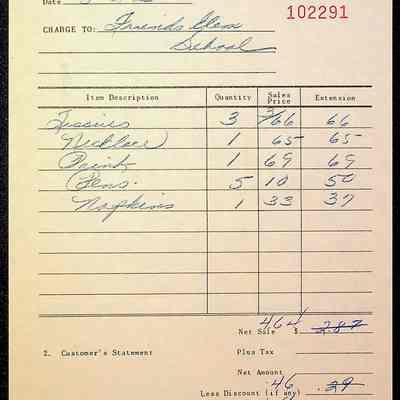 Date
102291
CHARGE TO: Friends Glen
School
Item Description Quantity Sales Price Extension
Tissues 3 66 66
Necklace 1 65 65
Paint 1 69 69
Pens. 5 10 50
Napkins 1 33 37
464
Net Sale $ 2.87
2. Customer's Statement Plus Tax
Net Amount
.46
Less Discount (if any) .29